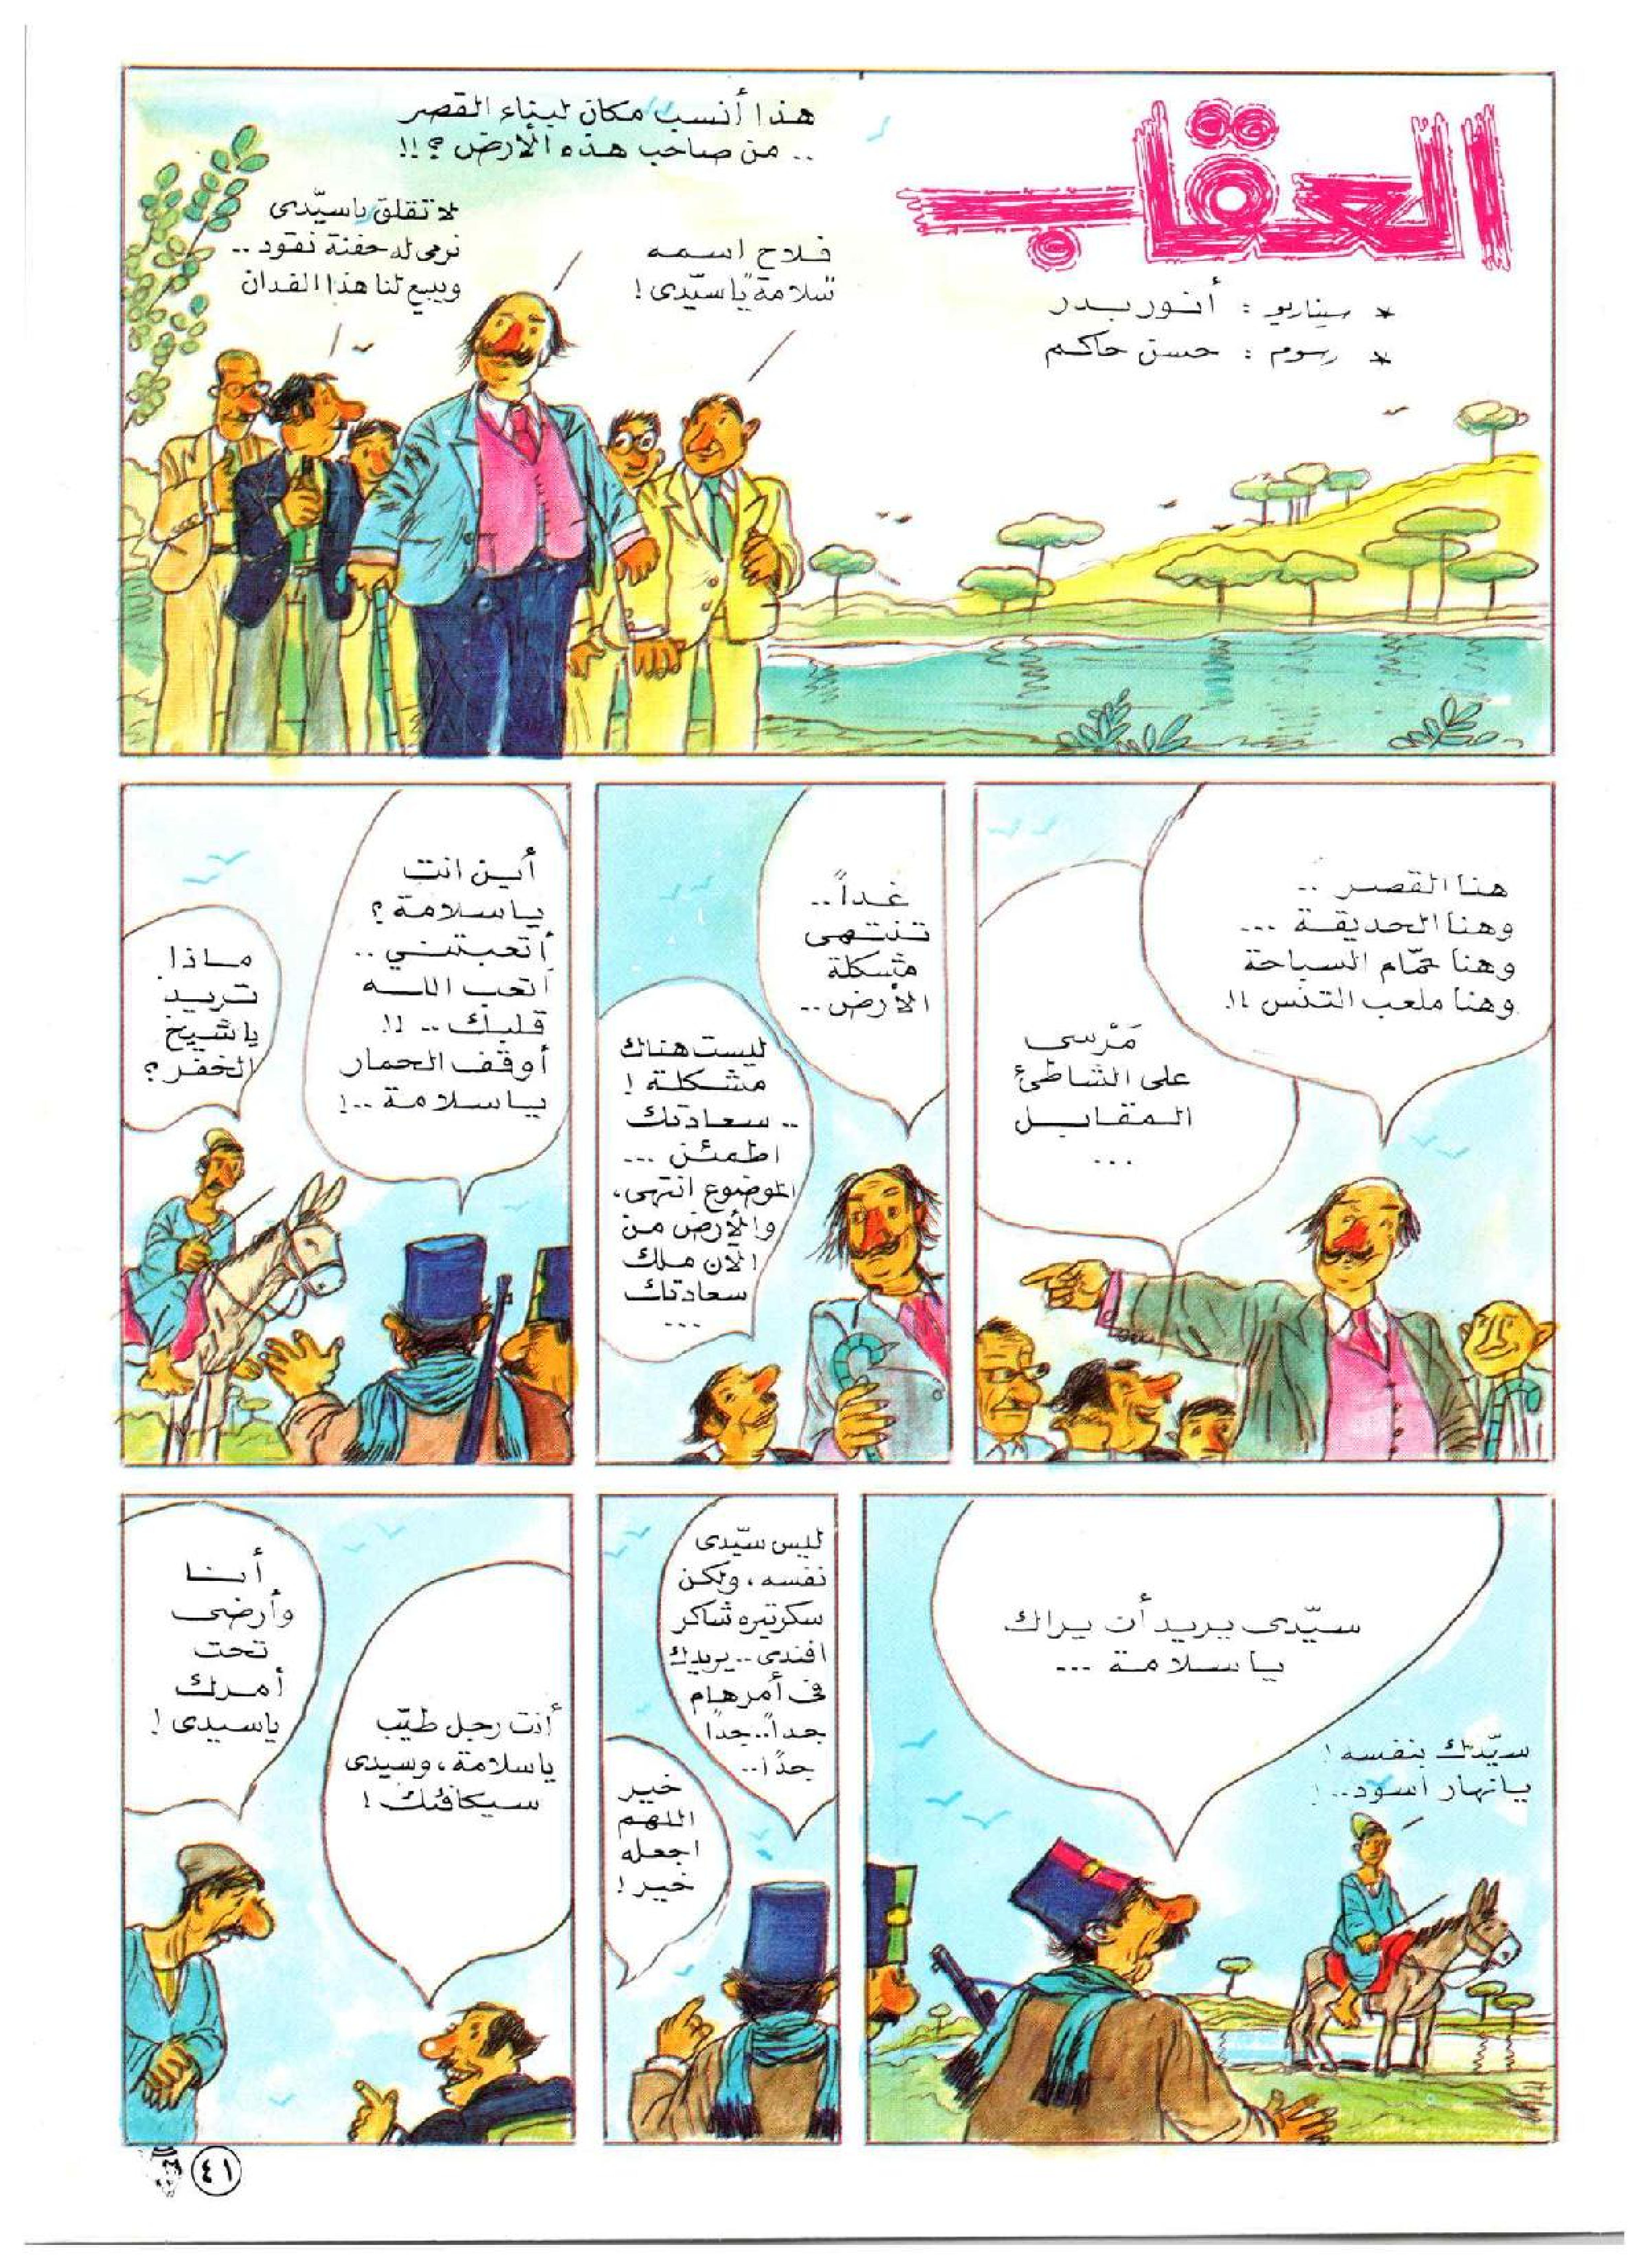 العقاب
* سيناريو : أنور بدر
* رسوم : حسن حاكم
هذا أنسب مكان لبناء القصر
.. من صاحب هذه الأرض ؟!!
فلاح اسمه
سلامة يا سيّدى !
لا تقلق يا سيّدى
نرمى له حفنة نقود ..
ويبيع لنا هذا الفدان
هنا القصر ..
وهنا الحديقة ...
وهنا حمّام السباحة
وهنا ملعب التنس !!
مَرْسى
على الشاطئ
المقابل
...
غداً ..
تنتهى
مشكلة
الأرض ..
ليست هناك
مشكلة !
.. سعادتك
اطمئن ...
الموضوع انتهى،
والأرض من
الآن ملك
سعادتك
...
أين انت
يا سلامة ؟
أتعبتني ..
أتعب الله
قلبك .. !!
أوقف الحمار
يا سلامة ..!
ماذا
تريد
يا شيخ
الخفر ؟
سيّدى يريد أن يراك
يا سلامة ...
سيّدك بنفسه !
يا نهار أسود.. !
ليس سيّدى
نفسه ، ولكن
سكرتيره شاكر
افندى .. يريدك
فى أمر هام
جداً.. جداً
جدًا..
خير
اللهم
اجعله
خير !
أنت رجل طيّب
يا سلامة ، وسيدى
سيكافئك !
أنا
وأرضى
تحت
أمرك
يا سيدى !
٤١